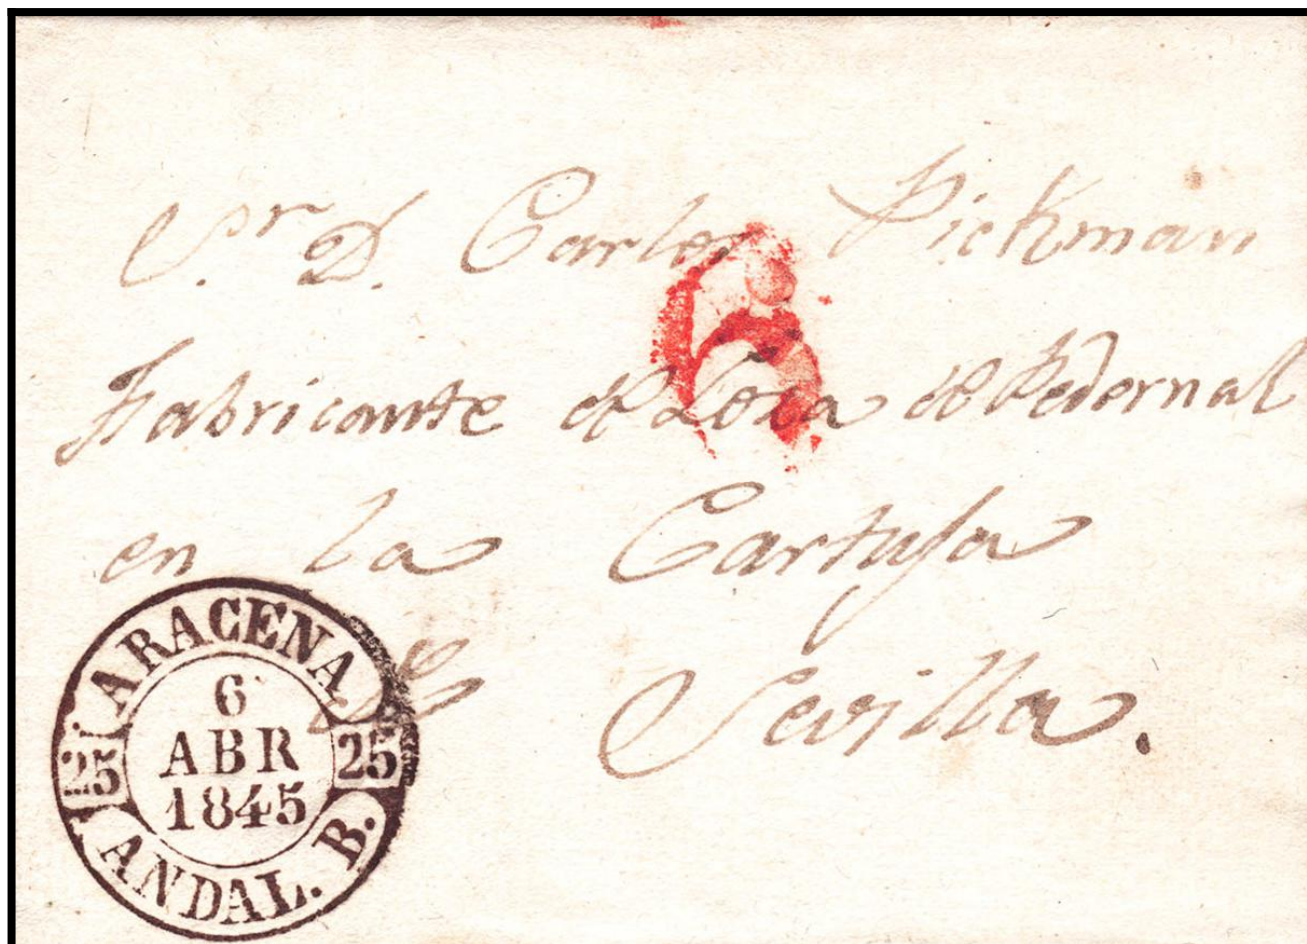 Sr. D. Carlos Pickman
6
Fabricante de Losa de Pedernal
en la Cartuja
Sevilla.
ARACENA
6
ABR
1845
25 25
ANDAL. B.